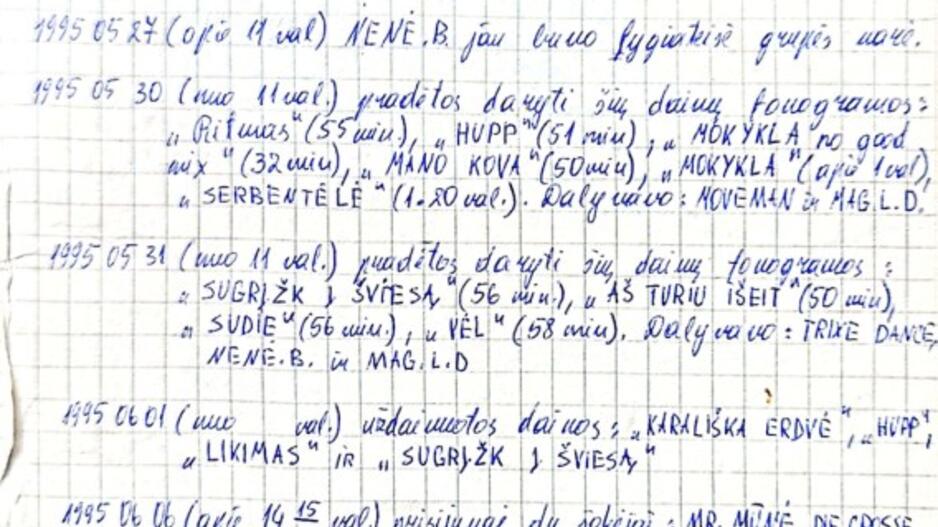 1995 05 27 (apie 11 val) NENĖ.B. jau buvo lygiateisė grupės narė.
1995 05 30 (nuo 11 val.) pradėtos daryti šių dainų fonogramos:
„Ritmas" (55 min), „HUPP" (51 min), „MOKYKLA no good
mix" (32 min), „MANO KOVA" (50 min), „MOKYKLA" (apie 1 val),
„SERBENTĖLĖ" (1.20 val.). Dalyvavo: MOVEMAN ir MAG.L.D.
1995 05 31 (nuo 11 val.) pradėtos daryti šių dainų fonogramos:
„SUGRĮŽK Į ŠVIESĄ" (56 min.), „AŠ TURIU IŠEIT" (50 min),
„SUDIE" (56 min.), „VĖL" (58 min). Dalyvavo: TRIXE DANCE,
NENĖ.B. ir MAG.L.D
1995 06 01 (nuo val.) uždainuotos dainos: „KARALIŠKA ERDVĖ", „HUPP",
„LIKIMAS" IR „SUGRĮŽK Į ŠVIESĄ"
1995 06 06 (apie 14 15 val) prisijungė du šokėjai: MR. MŪNĖ, DE GROSSE